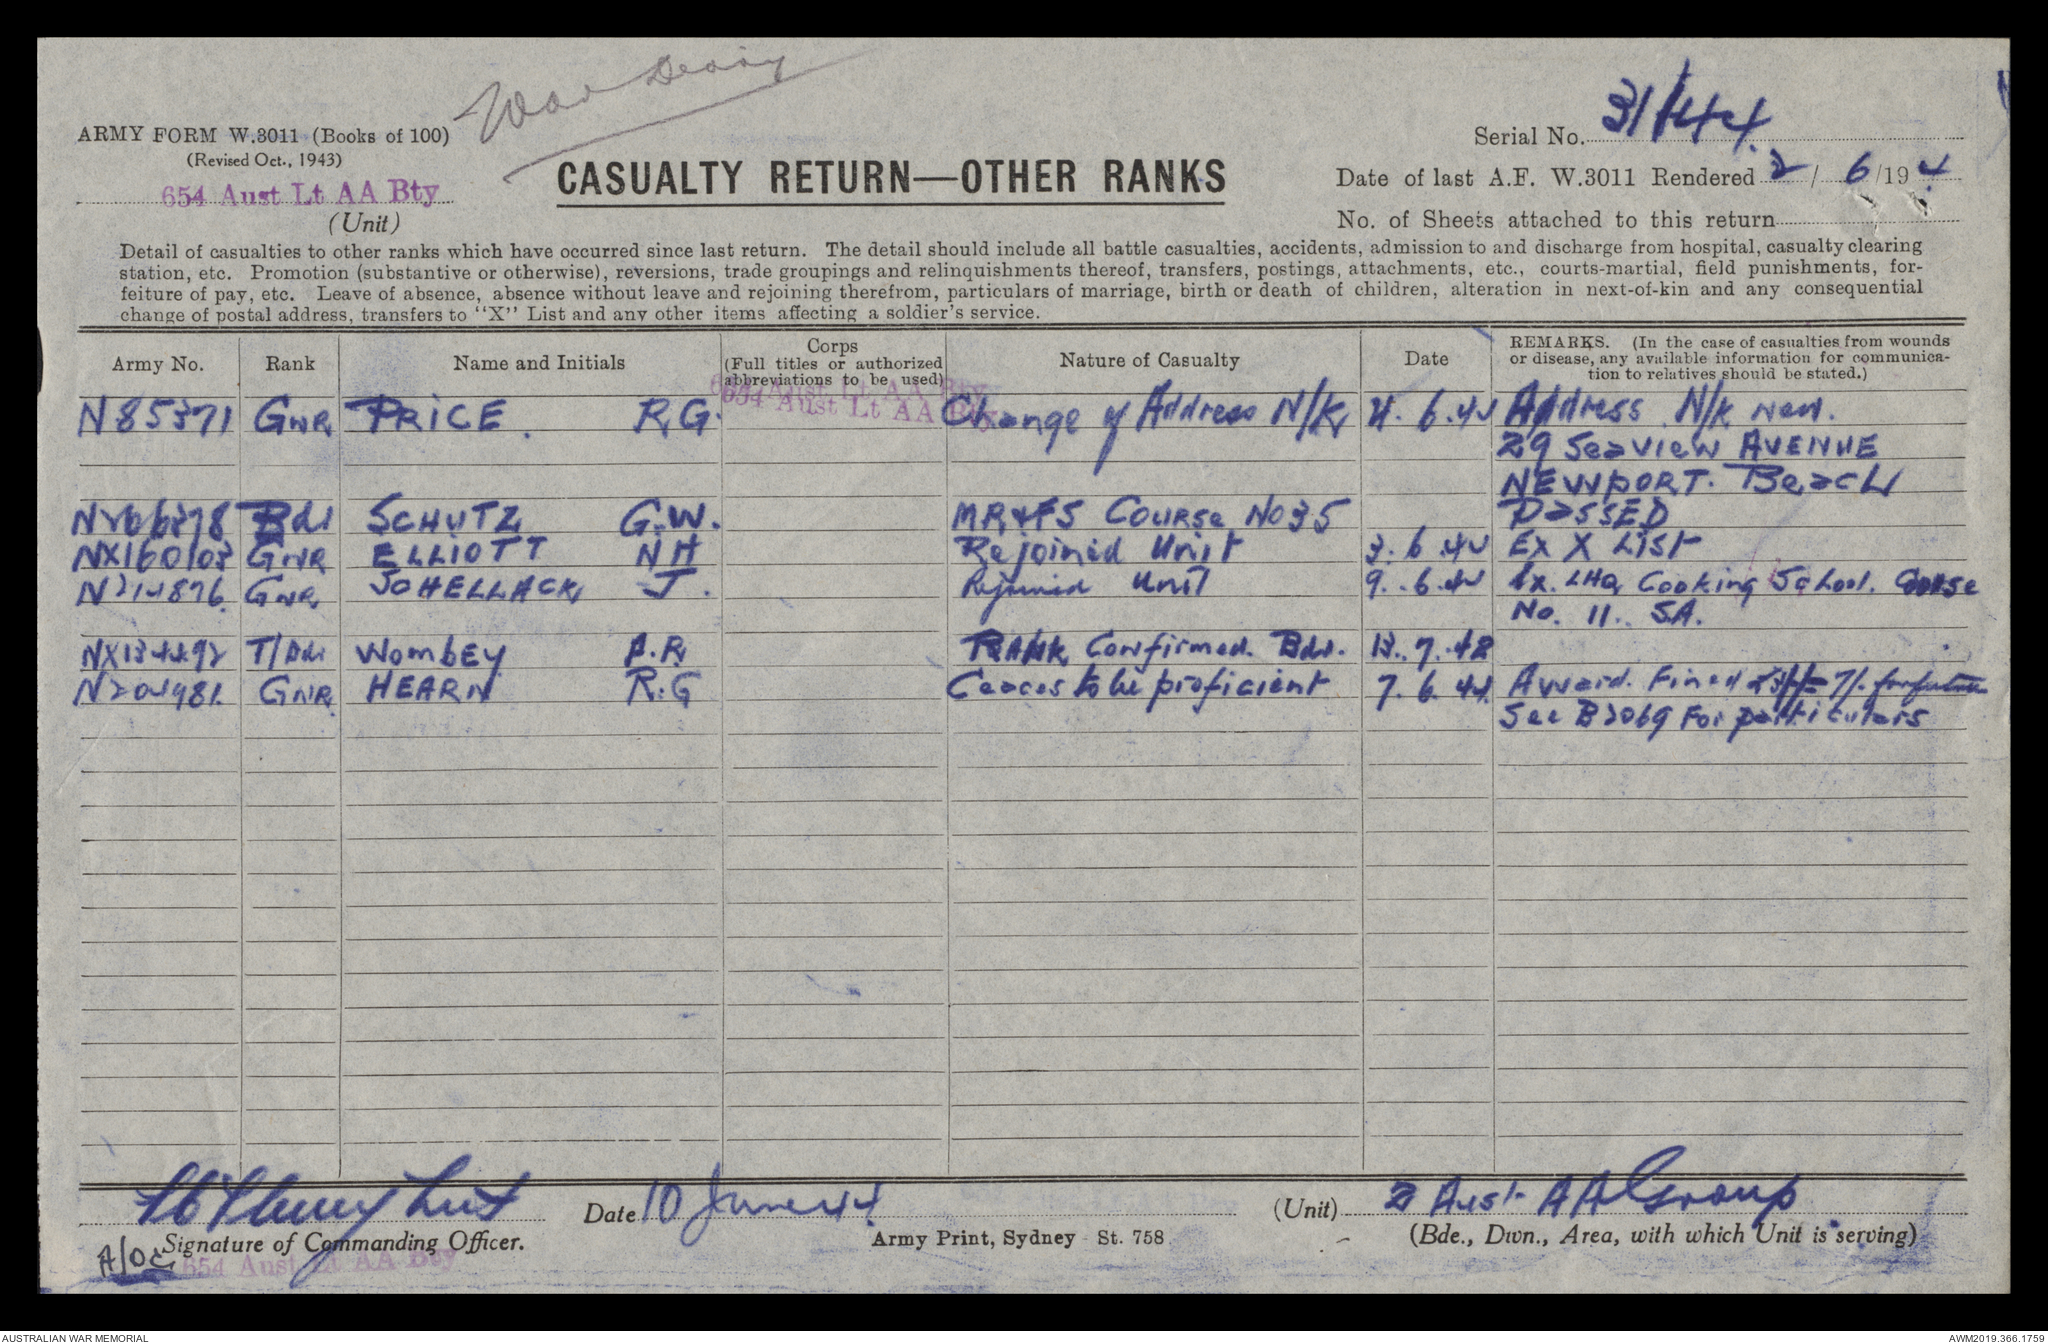 War Diary
ARMY FORM W.3011 (Books of 100)
(Revised Oct., 1943)
654 Aust Lt AA Bty
(Unit)
CASUALTY RETURN—OTHER RANKS
Serial No. 31/44.
Date of last A.F. W.3011 Rendered 2/6/194
No. of Sheets attached to this return
Detail of casualties to other ranks which have occurred since last return. The detail should include all battle casualties, accidents, admission to and discharge from hospital, casualty clearing
station, etc. Promotion (substantive or otherwise), reversions, trade groupings and relinquishments thereof, transfers, postings, attachments, etc., courts-martial, field punishments, for-
feiture of pay, etc. Leave of absence, absence without leave and rejoining therefrom, particulars of marriage, birth or death of children, alteration in next-of-kin and any consequential
change of postal address, transfers to "X" List and any other items affecting a soldier's service.
Army No. Rank Name and Initials Corps (Full titles or authorized abbreviations to be used) Nature of Casualty Date REMARKS. (In the case of casualties from wounds or disease, any available information for communica-tion to relatives should be stated.)
654 Aust Lt AA Bty
654 Aust Lt AA Bty
N85371 GNR PRICE. R.G. Change of Address N/K 4.6.44 Address N/K new.
29 Seaview AVENUE
NEWPORT. Beach
Bdr SCHUTZ G.W. Course No 35 PASSED
NX160103 GNR ELLIOTT NH Rejoined Unit 3.6.44 Ex X List
GNR J. Rejoined Unit 9.6.44 Ex. LHQ Cooking School. Course
No. 11. S.A.
T/Bdr WOMBEY A.R. RANK Confirmed. Bdr. 13.7.43
GNR HEARN R.G Ceaces to be proficient 7.6.44. Award. Fined
See B2069 For particulars
Lieut
Signature of Commanding Officer.
A/OC
654 Aust Lt AA Bty
Date 10 June 44
Army Print, Sydney St. 758
(Unit) 2 Aust AA Group
(Bde., Divn., Area, with which Unit is serving)
AUSTRALIAN WAR MEMORIAL
AWM2019.366.1759